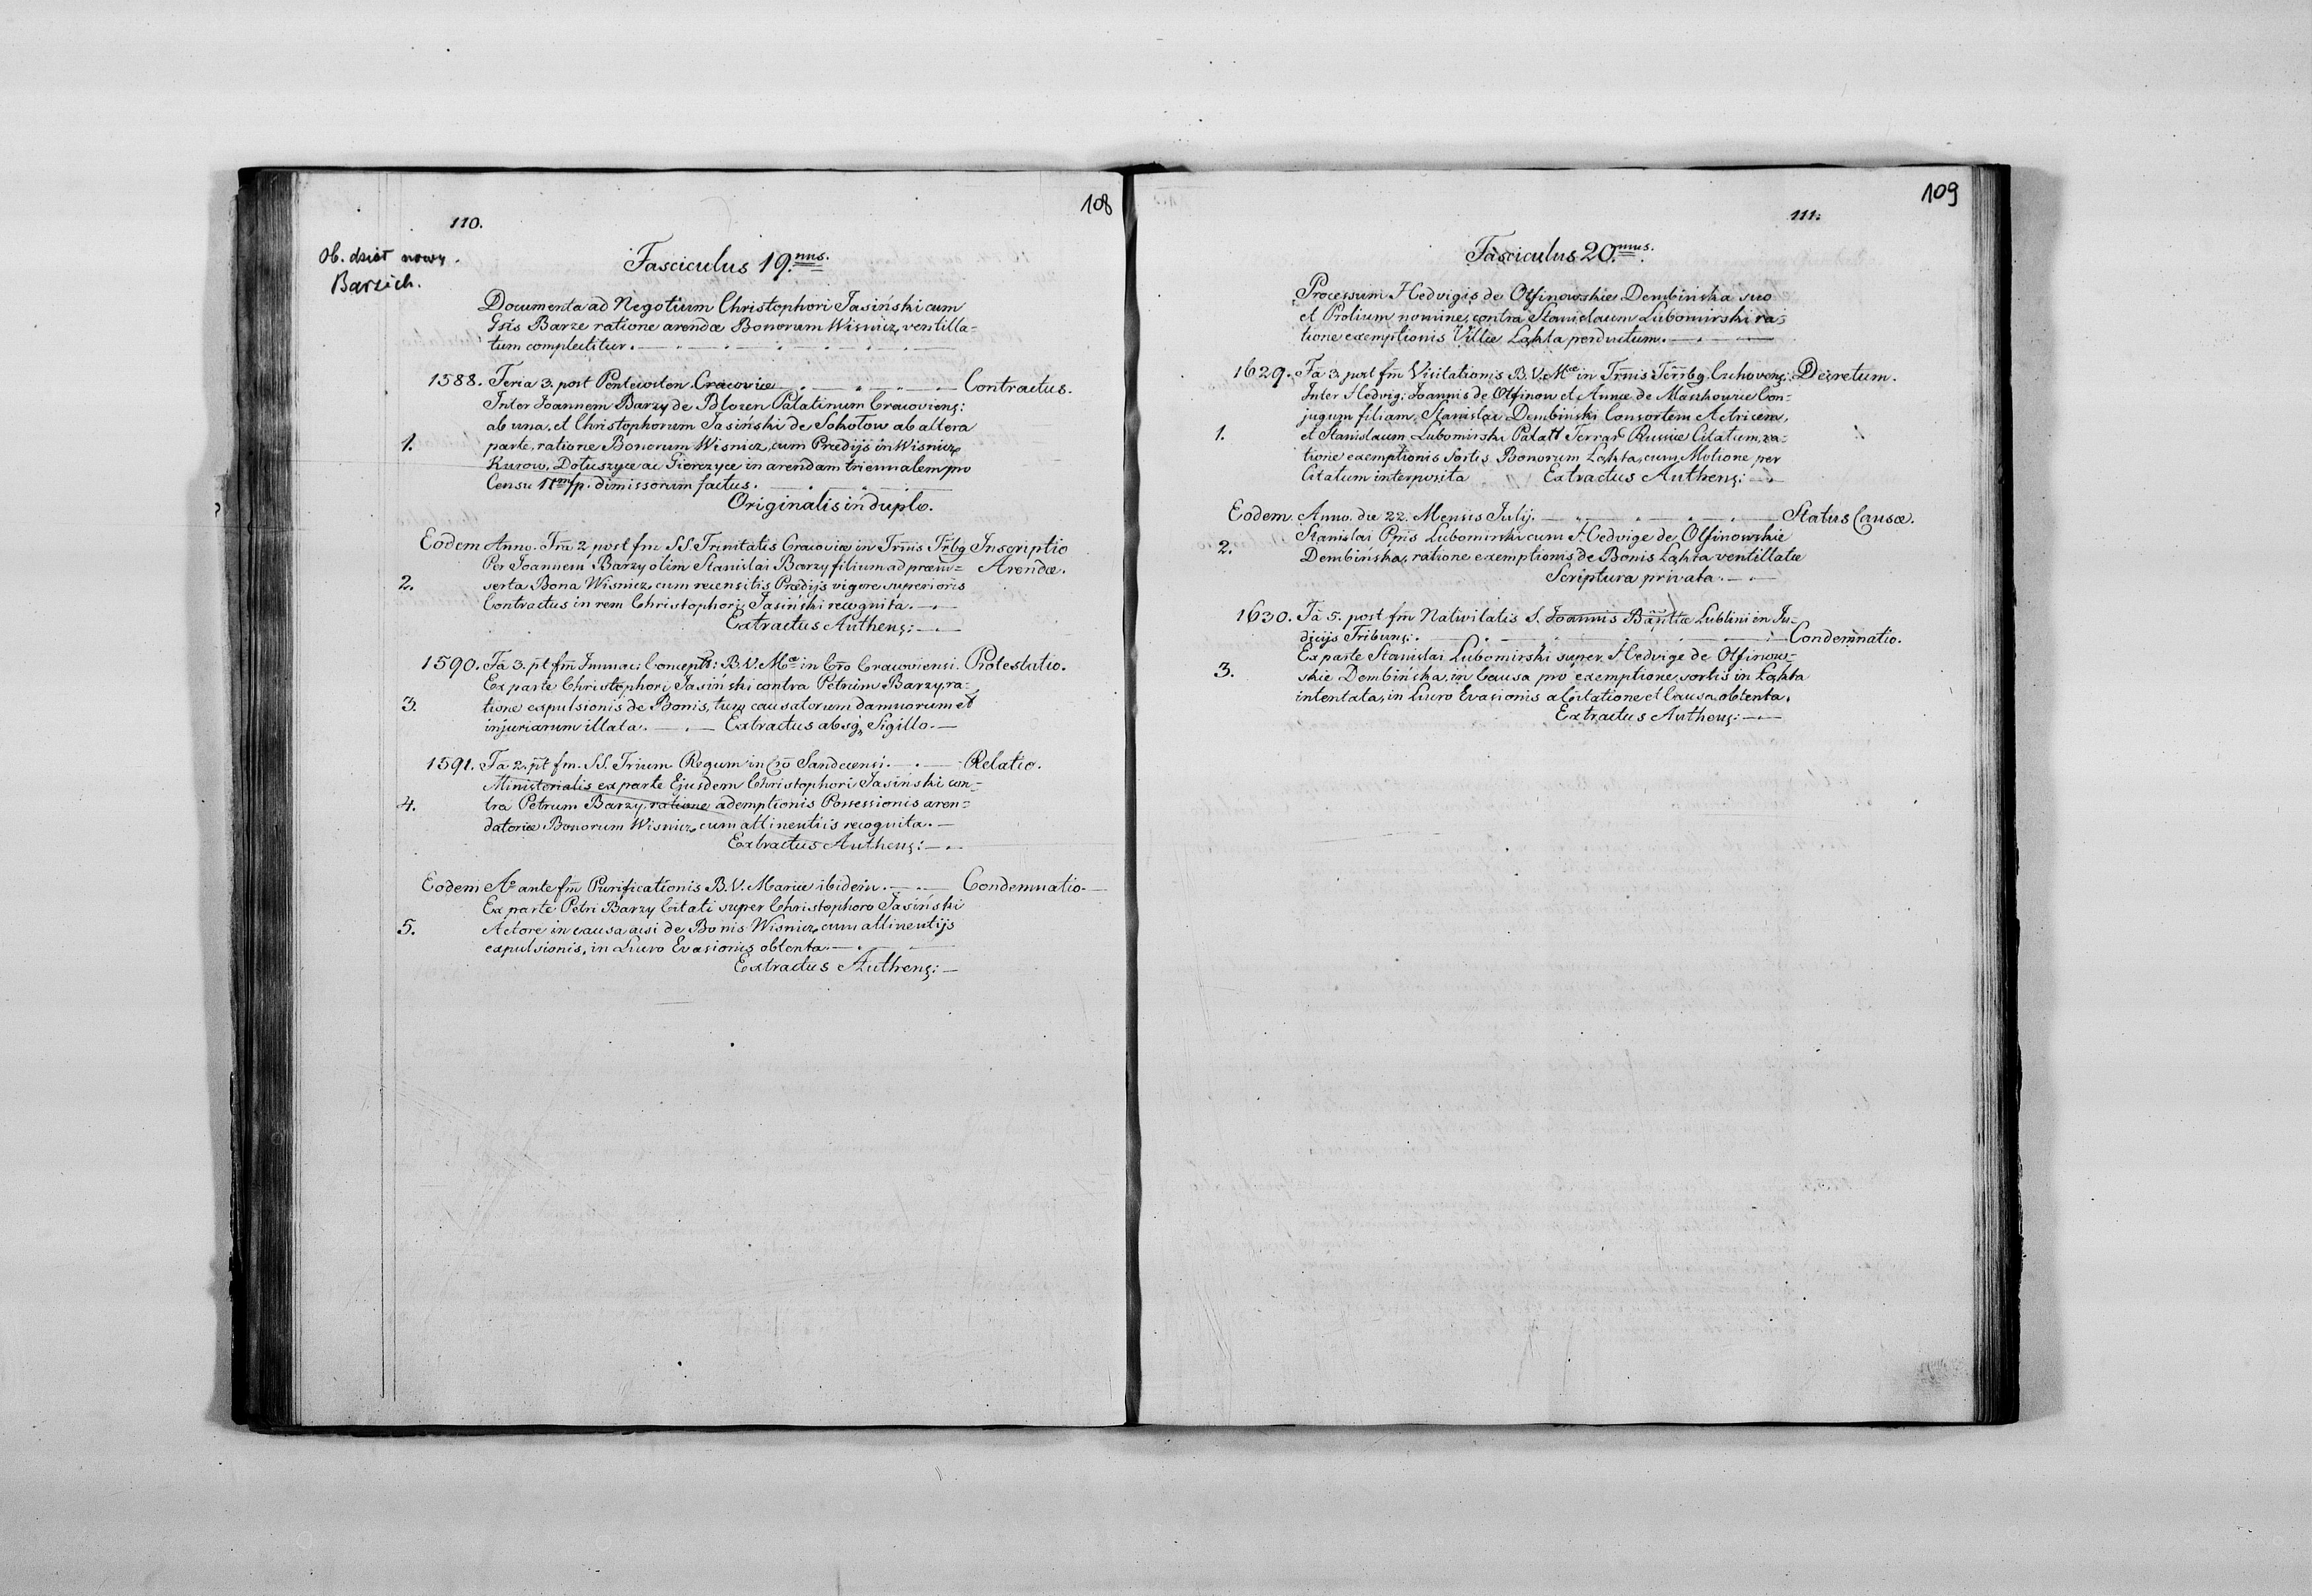 108
110.
Ob. dział nowy.
Barzich.
Fasciculus 19.nus.
Documenta ad Negotium Christophori Jasiński cum
Gsis Barze ratione arendæ Bonorum Wisnicz, ventilla-
tum complectitur.
1588. Feria 3. post Pentecosten. Cracoviæ Contractus.
Inter Joannem Barzy de Blozen Palatinum Cracoviens:
ab una, et Christophorum Jasiński de Sokołow ab altera
1. parte, ratione Bonorum Wisnicz, cum Prædijs in Wisnicz,
Kurow, Dołuszyce ac Gierczyce in arendam triennalem pro
Censu 11m/p. dimissorum factus.
Originalis in duplo.
Eodem Anno. Fria 2 post fm SS. Trinitatis Cracoviæ in Trmis Trbg Inscriptio
Per Joannem Barzy olim Stanislai Barzy filium ad præin= Arendæ.
2. serta Bona Wisnicz, cum recensitis Prædijs vigore superioris
Contractus in rem Christophori Jasiński recognita.
Extractus Authens:
1590. Fa 3. pt fm Immac: Concept: B.V.Mæ in Cro Cracoviensi. Protestatio.
Ex parte Christophori Jasiński contra Petrum Barzy, ra-
3. tione expulsionis de Bonis, tum causatorum damnorum et
injuriarum illata. Extractus absq, Sigillo.
1591. Fa 2. pt fm. SS. Trium Regum in Cro Sandecensi. Relatio.
Ministerialis ex parte Ejusdem Christophori Jasiński con-
4. tra Petrum Barzy, ratione ademptionis Possessionis aren-
datoriæ Bonorum Wisnicz, cum attinentiis recognita.
Extractus Authens:
Eodem Aº ante fm Purificationis B.V. Mariæ ibidem. Condemnatio.
Ex parte Petri Barzy Citati super Christophoro Jasiński
5. Actore in causa acsi de Bonis Wisnicz, cum attinentijs
expulsionis, in Lucro Evasionis obtenta.
Extractus Authens:
109
111.
Fasciculus 20.mus.
Processum Hedvigis de Olfinowskie Dembińska suo
et Prolium nomine, contra Stanislaum Lubomirski ra-
tione exemptionis Villæ Łąkta perductum.
1629. Fa 3. post fm Visitationis B.V.Mæ in Trmis Terrbg. Czchovens: Decretum.
Inter Hedvig: Joannis de Olfinow et Annæ de Maszkowice Con-
jugum filiam, Stanislai Dembiński Consortem Actricem,
1. et Stanislaum Lubomirski Palatt Terrar Russiæ Citatum, ra-
tione exemptionis Sortis Bonorum Łąkta, cum Motione per
Citatum interposita Extractus Authens:
Eodem Anno. die 22. Mensis Julij. Status Causæ.
Stanislai Ppis Lubomirski cum Hedvige de Olfinowskie
2. Dembińska, ratione exemptionis de Bonis Łąkta ventillatæ
Scriptura privata.
1630. Fa 5. post fm Nativitatis S. Joannis Bāptæ Lublini in Ju-
dicijs Tribuns: Condemnatio.
Ex parte Stanislai Lubomirski super Hedvige de Olfinow-
3. skie Dembińska, in Causa pro exemptione sortis in Łąkta
intentata, in Lucro Evasionis a Citatione et Causa obtenta.
Extractus Authens: